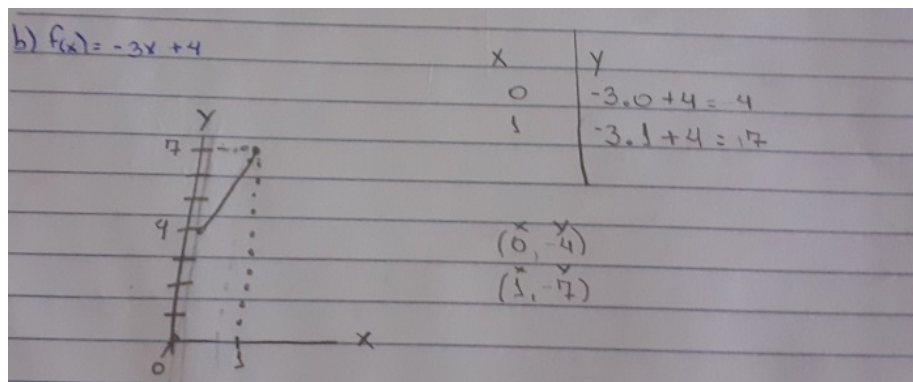 b) f(x) = -3x + 4
X Y
0 -3.0 + 4 = 4
1 -3.1 + 4 = 7
Y
7
4
0
1
X
x y
(0, -4)
x y
(1, -7)